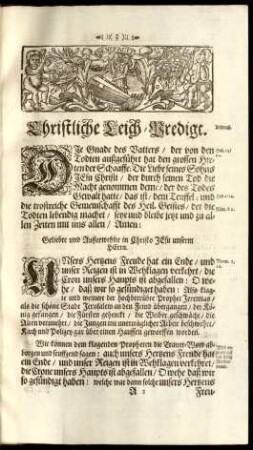 Christliche Leich-Predigt.
DIe Gnade des Vatters / der von den
Todten außgeführt hat den grossen Hir-
ten der Schaaffe: Die Liebe seines Sohns
JEsu Christi / der durch seinen Tod die
Macht genommen dem / der des Todes
Gewalt hatte / das ist / dem Teuffel / und
die trostreiche Gemeinschafft des Heil. Geistes / der die
Todten lebendig machet / seye und bleibe jetzt und zu al-
len Zeiten mit uns allen / Amen:
Geliebte und Außerwehlte in Christo JEsu unserm
HErrn.
UNsers Hertzens Freude hat ein Ende / und
unser Reigen ist in Wehklagen verkehrt / die
Cron unsers Haupts ist abgefallen: O we-
he / daß wir so gesündiget haben: Also klag-
te und weinete der hochbetrübte Prophet Jeremias /
als die schöne Stadt Jerusalem an den Feind übergangen / die Kö-
nig gefangen / die Fürsten gehenckt / die Weiber geschwächt / die
Kirch und Policey gar über einen Hauffen geworffen worden.
Wir können dem klagenden Propheten die Trauer-Wort ab-
borgen und seuffzend sagen: auch unsers Hertzens Freude hat
ein Ende / und unser Reigen ist in Wehklagen verkehret /
die Crone unsers Haupts ist abgefallen / O wehe daß wir
so gesündiget haben: welche war dann solche unsers Hertzens
Freu-